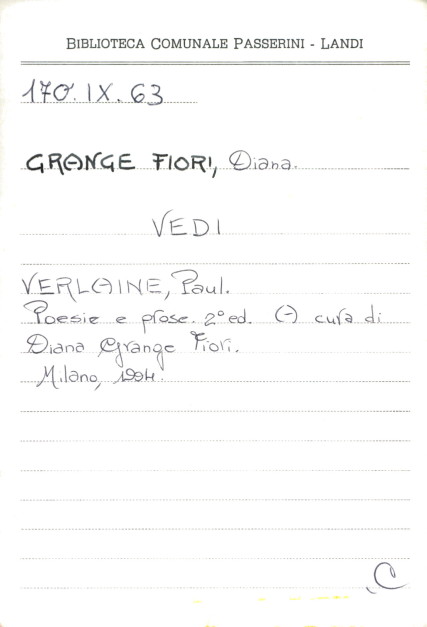 BIBLIOTECA COMUNALE PASSERINI - LANDI
170.IX.63
GRANGE FIORI, Diana.
VEDI
VERLAINE, Paul.
Poesie e prose. 2° ed. A cura di
Diana Grange Fiori.
Milano, 1994.
C